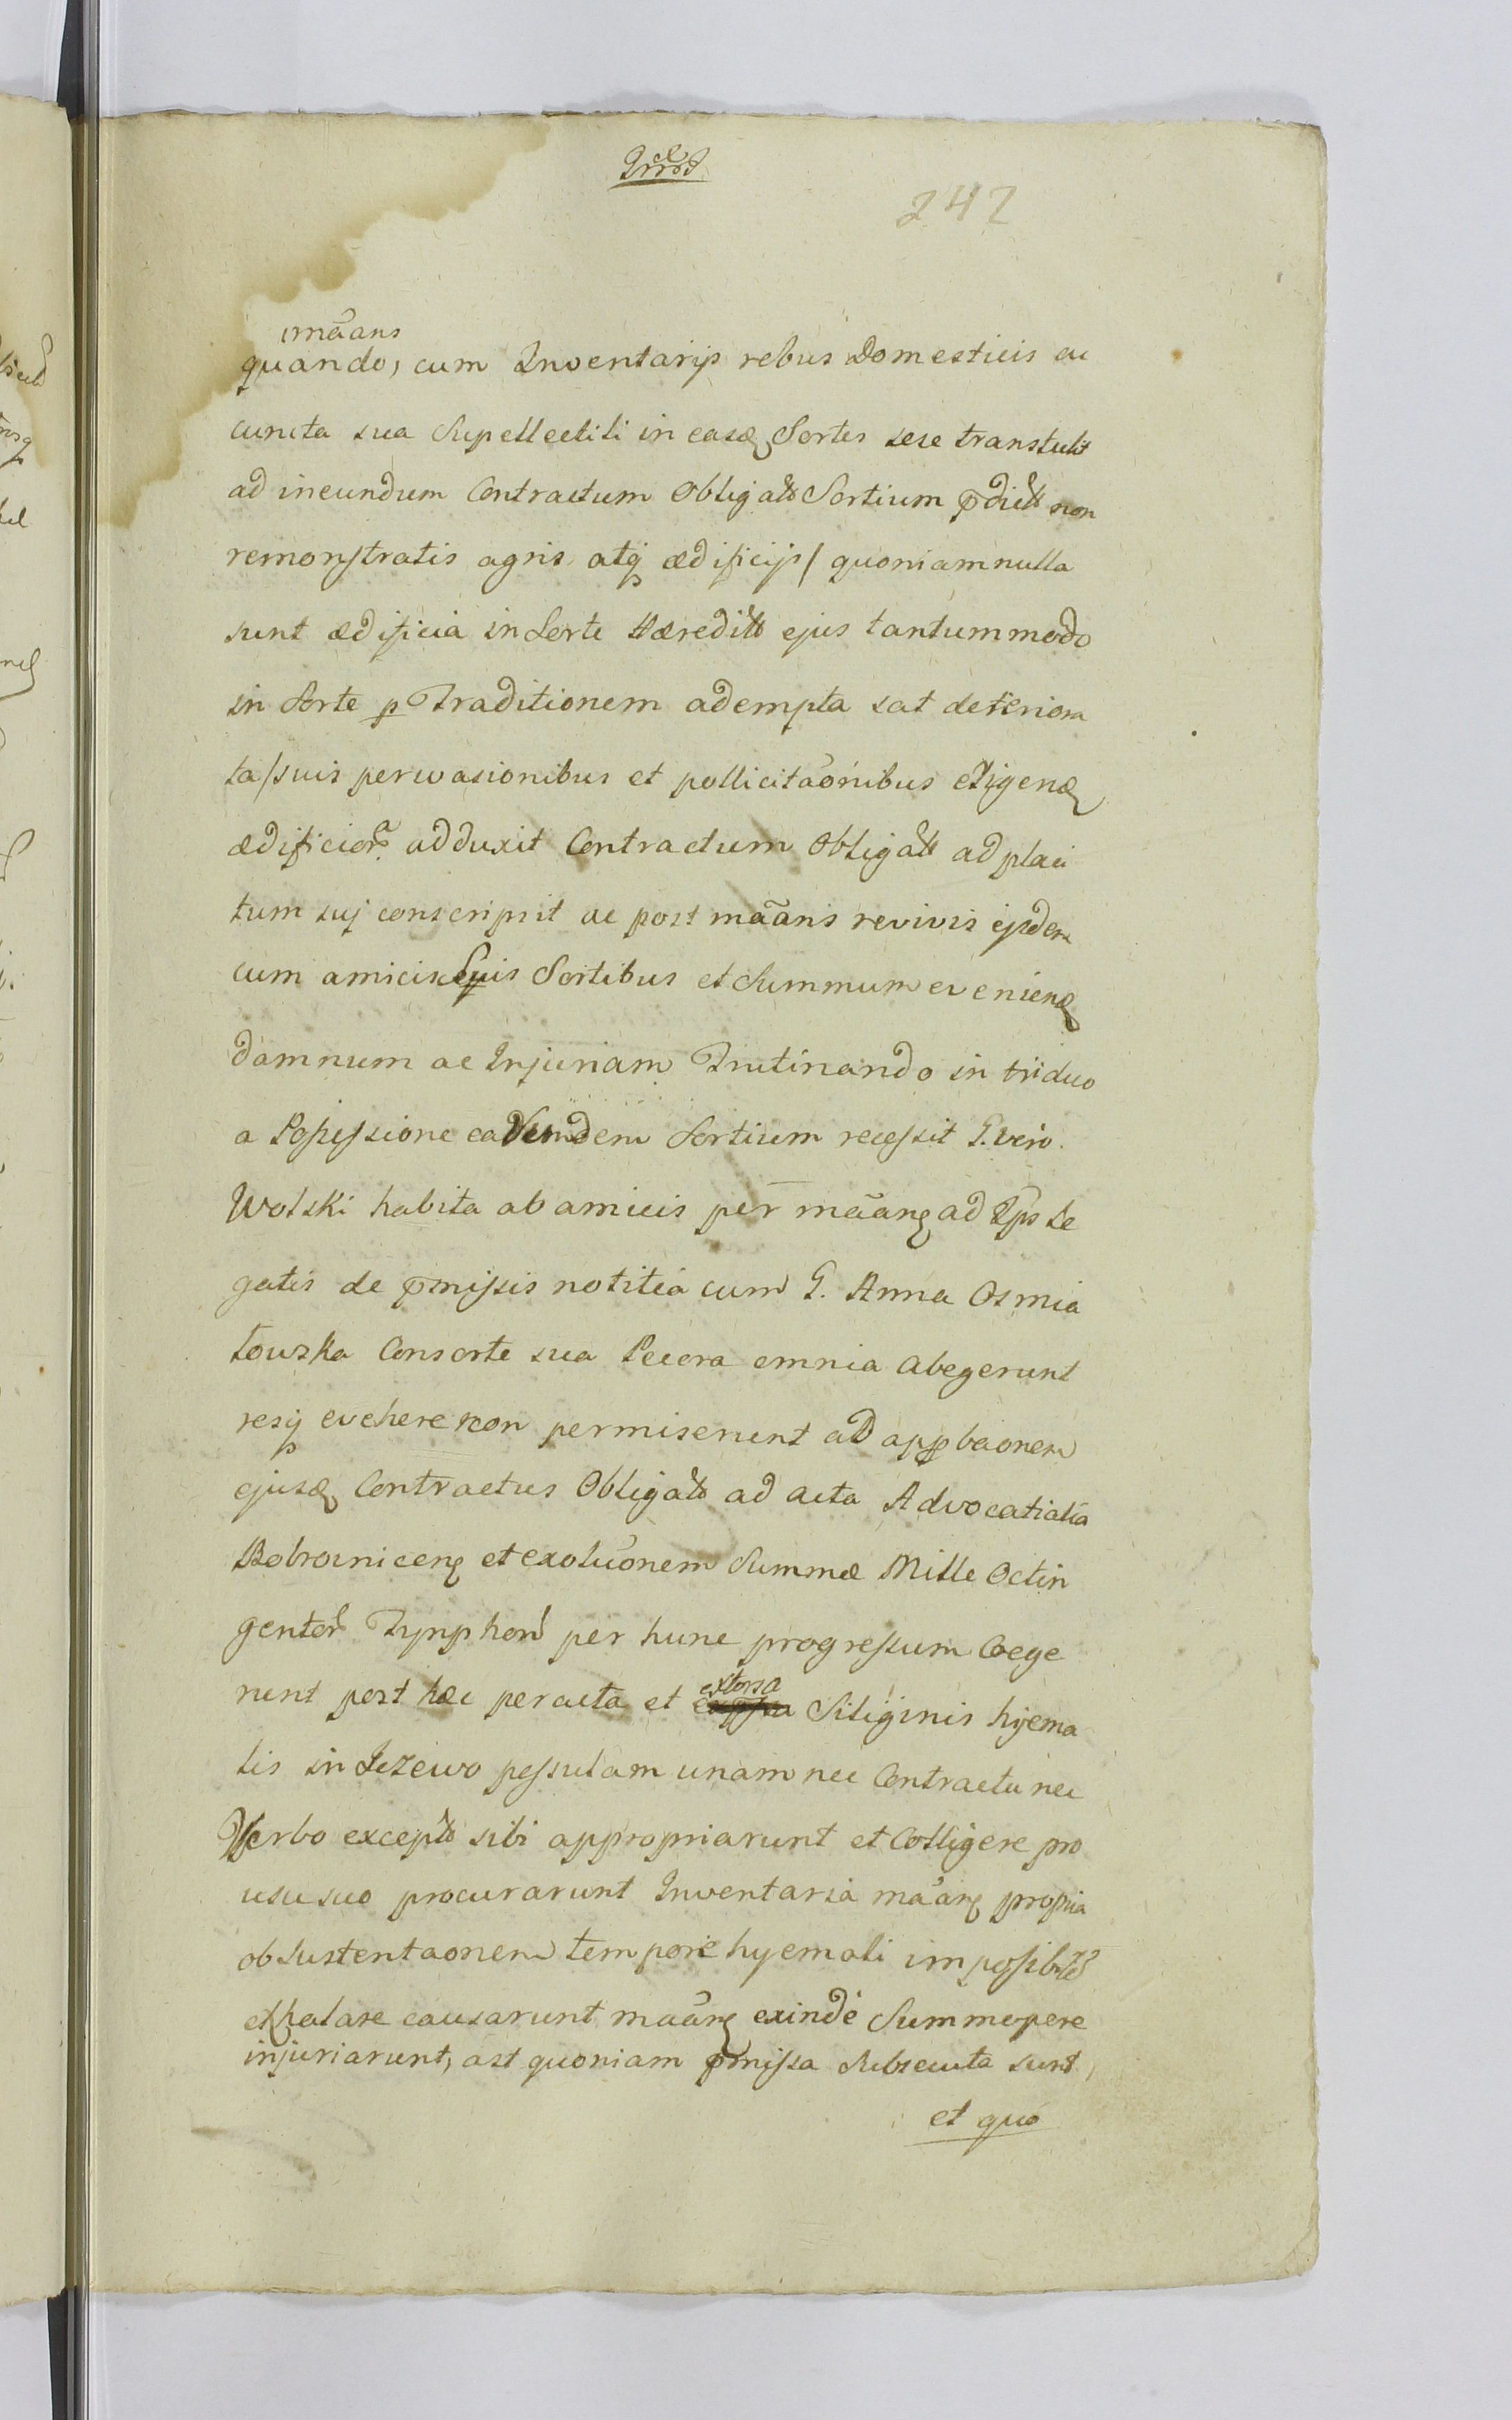 242
mãans
quando, cum Inventarijs rebus Domesticis ac
cuncta sua Supellectili in easq Sortes sese transtulit
ad ineundum Contractum Obligatt Sortium p̄dictt non
remonstratis agris atq ædificijs / quoniam nulla
sunt ædificia in Sorte Hæreditt ejus tantummodo
in Sorte p Traditionem adempta sat deteriora
ta / suis perwasionibus et pollicitãonibus erigenq
ædificior adduxit Contractum Obligatt ad placi
tum suj conscripsit ac post mãans revivis ejsdem
cum amicis suis Sortibus et Summum evenienq
damnum ac Injuriam Trutinando in triduo
a Possessione earundem Sortium recessit G. vero
Wolski habita ab amicis per mãanq ad Ips le
gatis de p̄missis notitia cum G. Anna Osmia
łowska Consorte sua Pecora omnia abegerunt
resq evehere non permiserunt ad appbaonem
ejusq Contractus Obligatt ad acta Advocatialia
Bobrovnicenq et exoluõnem Summæ Mille Octin
gentor Tynphor per hunc progressum Coege
runt post hæc peracta et extorsa Siliginis hyema
lis in Jeżewo pessulam unam nec Contractu nec
Verbo exceptt sibi appropriarunt et Colligere pro
usu suo procurarunt Inventaria mãanq propria
ob sustentaonem tempore hyemali impossibltt
exhalare causarunt mãanq exinde Summopere
injuriarunt, ast quoniam p̄missa Subsecuta sunt,
et quo